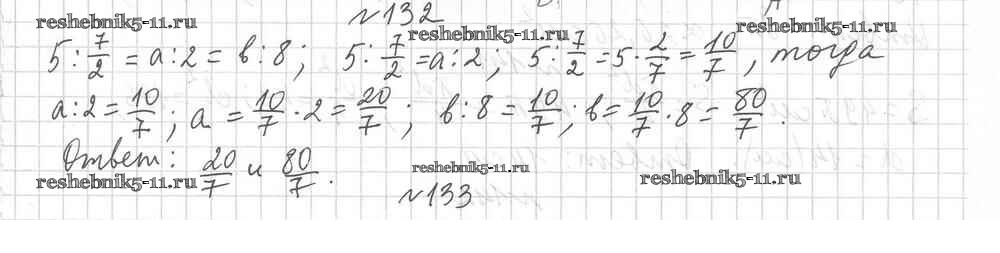 №132
reshebnik5-11.ru
reshebnik5-11.ru
reshebnik5-11.ru
5 : 7/2 = a : 2 = в : 8 ; 5 : 7/2 = a : 2 ; 5 : 7/2 = 5 · 2/7 = 10/7 , тогда
a : 2 = 10/7 ; a = 10/7 · 2 = 20/7 ; в : 8 = 10/7 ; в = 10/7 · 8 = 80/7 .
Ответ: 20/7 и 80/7 .
reshebnik5-11.ru
reshebnik5-11.ru
reshebnik5-11.ru
№133